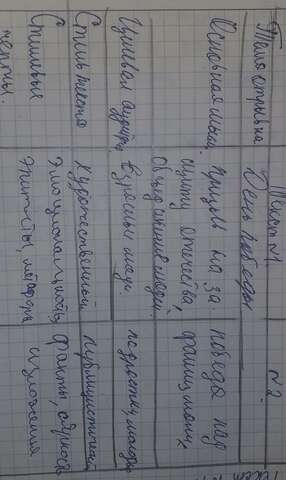 Текст №1. №2.
Тема отрывка День победы
Основная мысл. Призыв на за- победа над
щиту отечества, фашизмом
объединение людей.
Целевая аудит. взрослые люди. подростки, молодежь
Стиль текста художественный публицистический
Стилевые эмоциональность, факты,
черты. эпитеты, метафоры изложения